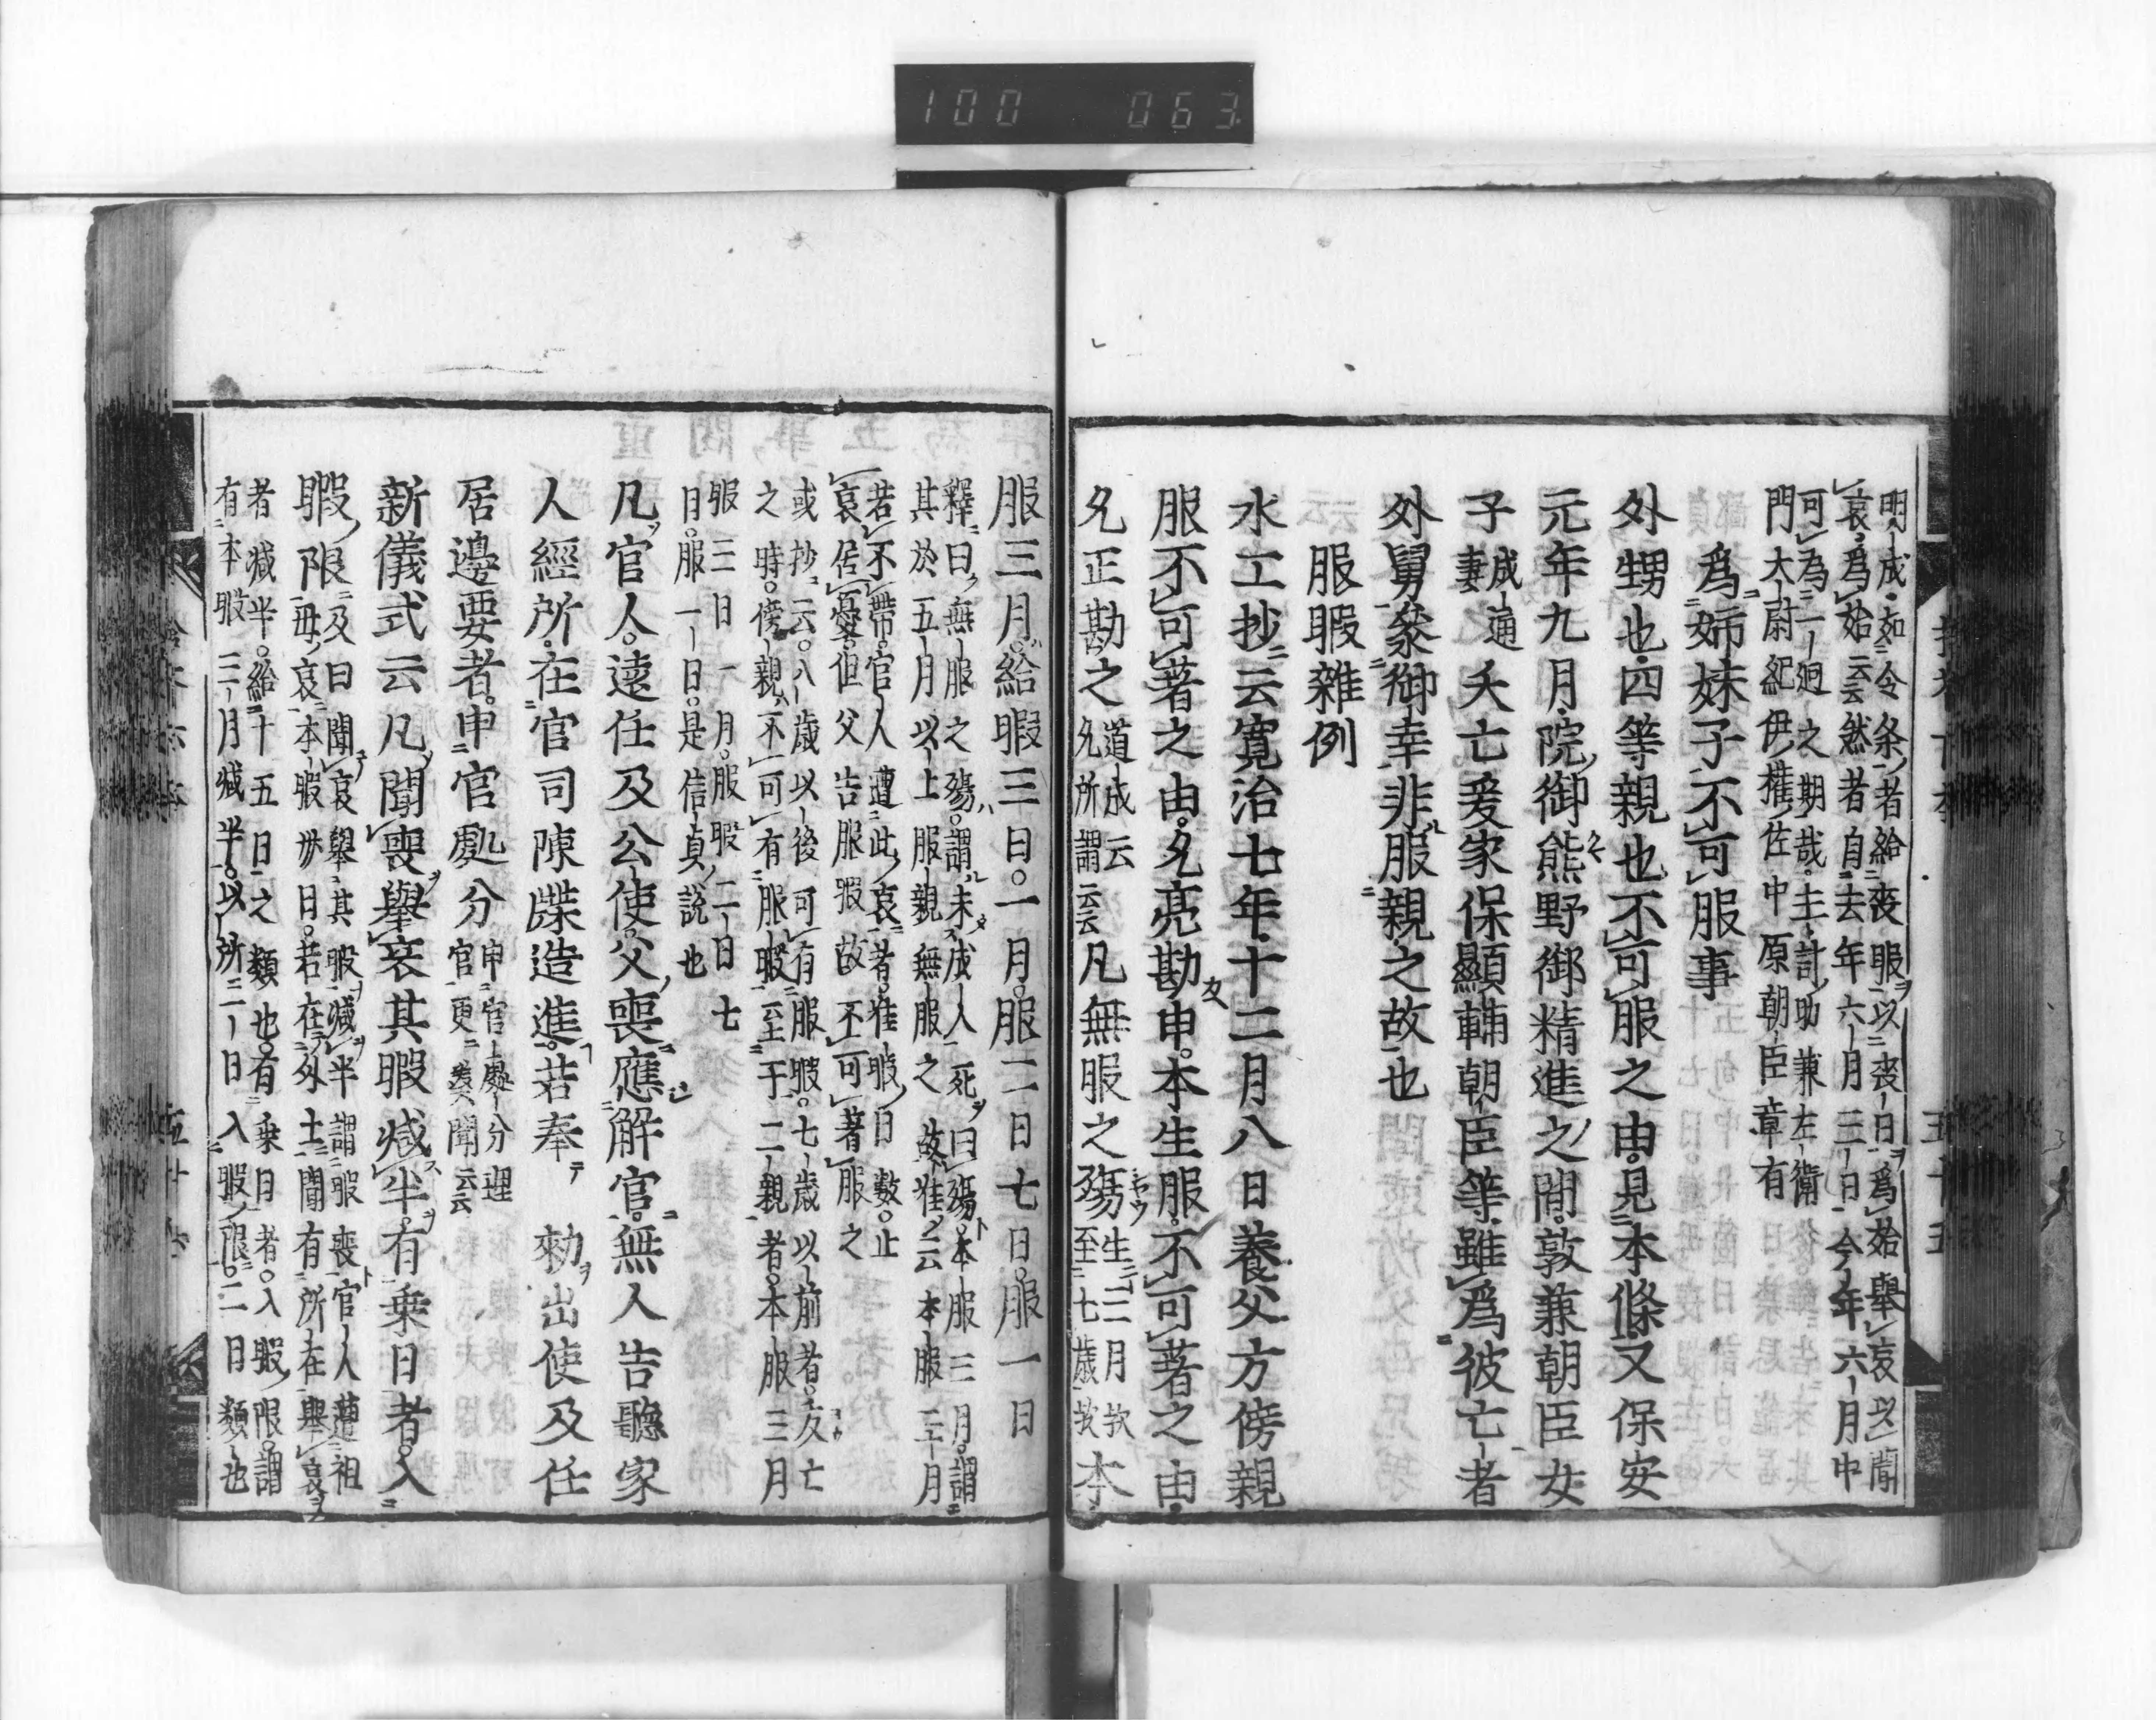 100 063
明成如令条者給喪服以喪日為始舉哀以聞
哀為始云云然者自去年六月三日今年六月中
可為一廻之期哉主計助兼左衛
門大尉紀伊権佐中原朝臣章有
為姉妹子不可服事
外甥也四等親也不可服之由見本條又保安
元年九月院御熊野御精進之間敦兼朝臣女
子成通妻夭亡爰家保顯輔朝臣等雖為彼亡者
外舅參御幸非服親之故也
服暇雜例
水工抄云寛治七年十二月八日養父方傍親
服不可著之由允亮勘申本生服不可著之由
允正勘之道成云允所謂云云凡無服之殤生三月欤至七歳欤本
服三月給暇三日一月服二日七日服一日
釋曰無服之殤謂未成人死曰殤本服三月謂
其於五月以上服親無服之故准云本服三月
若不帶官人遭此哀者准暇日數止
哀居憂但父告服暇故不可著服之
或抄云八歳以後可有服暇七歳以前者父亡
之時傍親不可有服暇至于二親者本服三月
服三日一月服暇二日七
日服一日是信貞説也
凡官人遠任及公使父喪應解官無人告聽家
人經所在官司陳牒造進若奉 勅出使及任
居邊要者申官處分申官處分謂官更奏聞云云
新儀式云凡聞喪舉哀其暇減半有乗日者入
暇限及日聞哀舉其服減半謂暇喪官人遭祖
母哀本暇卅日若在外土聞有所在舉哀
者減半給十五日之類也有乗日者入暇限謂
有本服三月減半以所二日入暇限二日類也